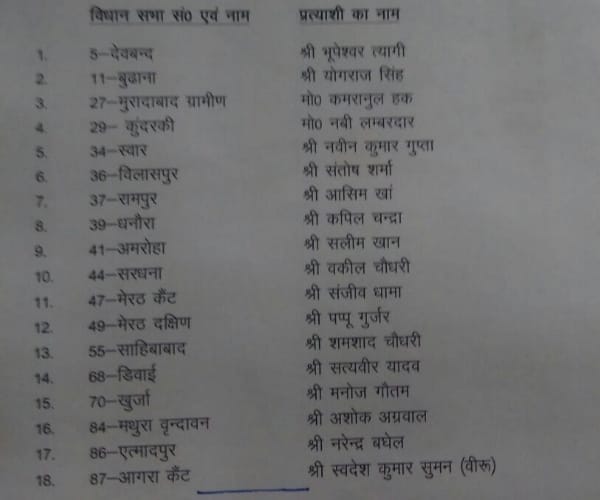 विधान सभा सं0 एवं नाम प्रत्याशी का नाम
1. 5–देवबन्द श्री भूपेश्वर त्यागी
2. 11–बुढाना श्री योगराज सिंह
3. 27–मुरादाबाद ग्रामीण मो0 कमरानुल हक
4. 29– कुंदरकी मो0 नबी लम्बरदार
5. 34–स्वार श्री नवीन कुमार गुप्ता
6. 36–विलासपुर श्री संतोष शर्मा
7. 37–रामपुर श्री आसिम खां
8. 39–धनौरा श्री कपिल चन्द्रा
9. 41–अमरोहा श्री सलीम खान
10. 44–सरधना श्री वकील चौधरी
11. 47–मेरठ कैंट श्री संजीव धामा
12. 49–मेरठ दक्षिण श्री पप्पू गुर्जर
13. 55–साहिबाबाद श्री शमशाद चौधरी
14. 68–डिवाई श्री सत्यवीर यादव
15. 70–खुर्जा श्री मनोज गौतम
16. 84–मथुरा वृन्दावन श्री अशोक अग्रवाल
17. 86–एत्मादपुर श्री नरेन्द्र बघेल
18. 87–आगरा कैंट श्री स्वदेश कुमार सुमन (वीरू)